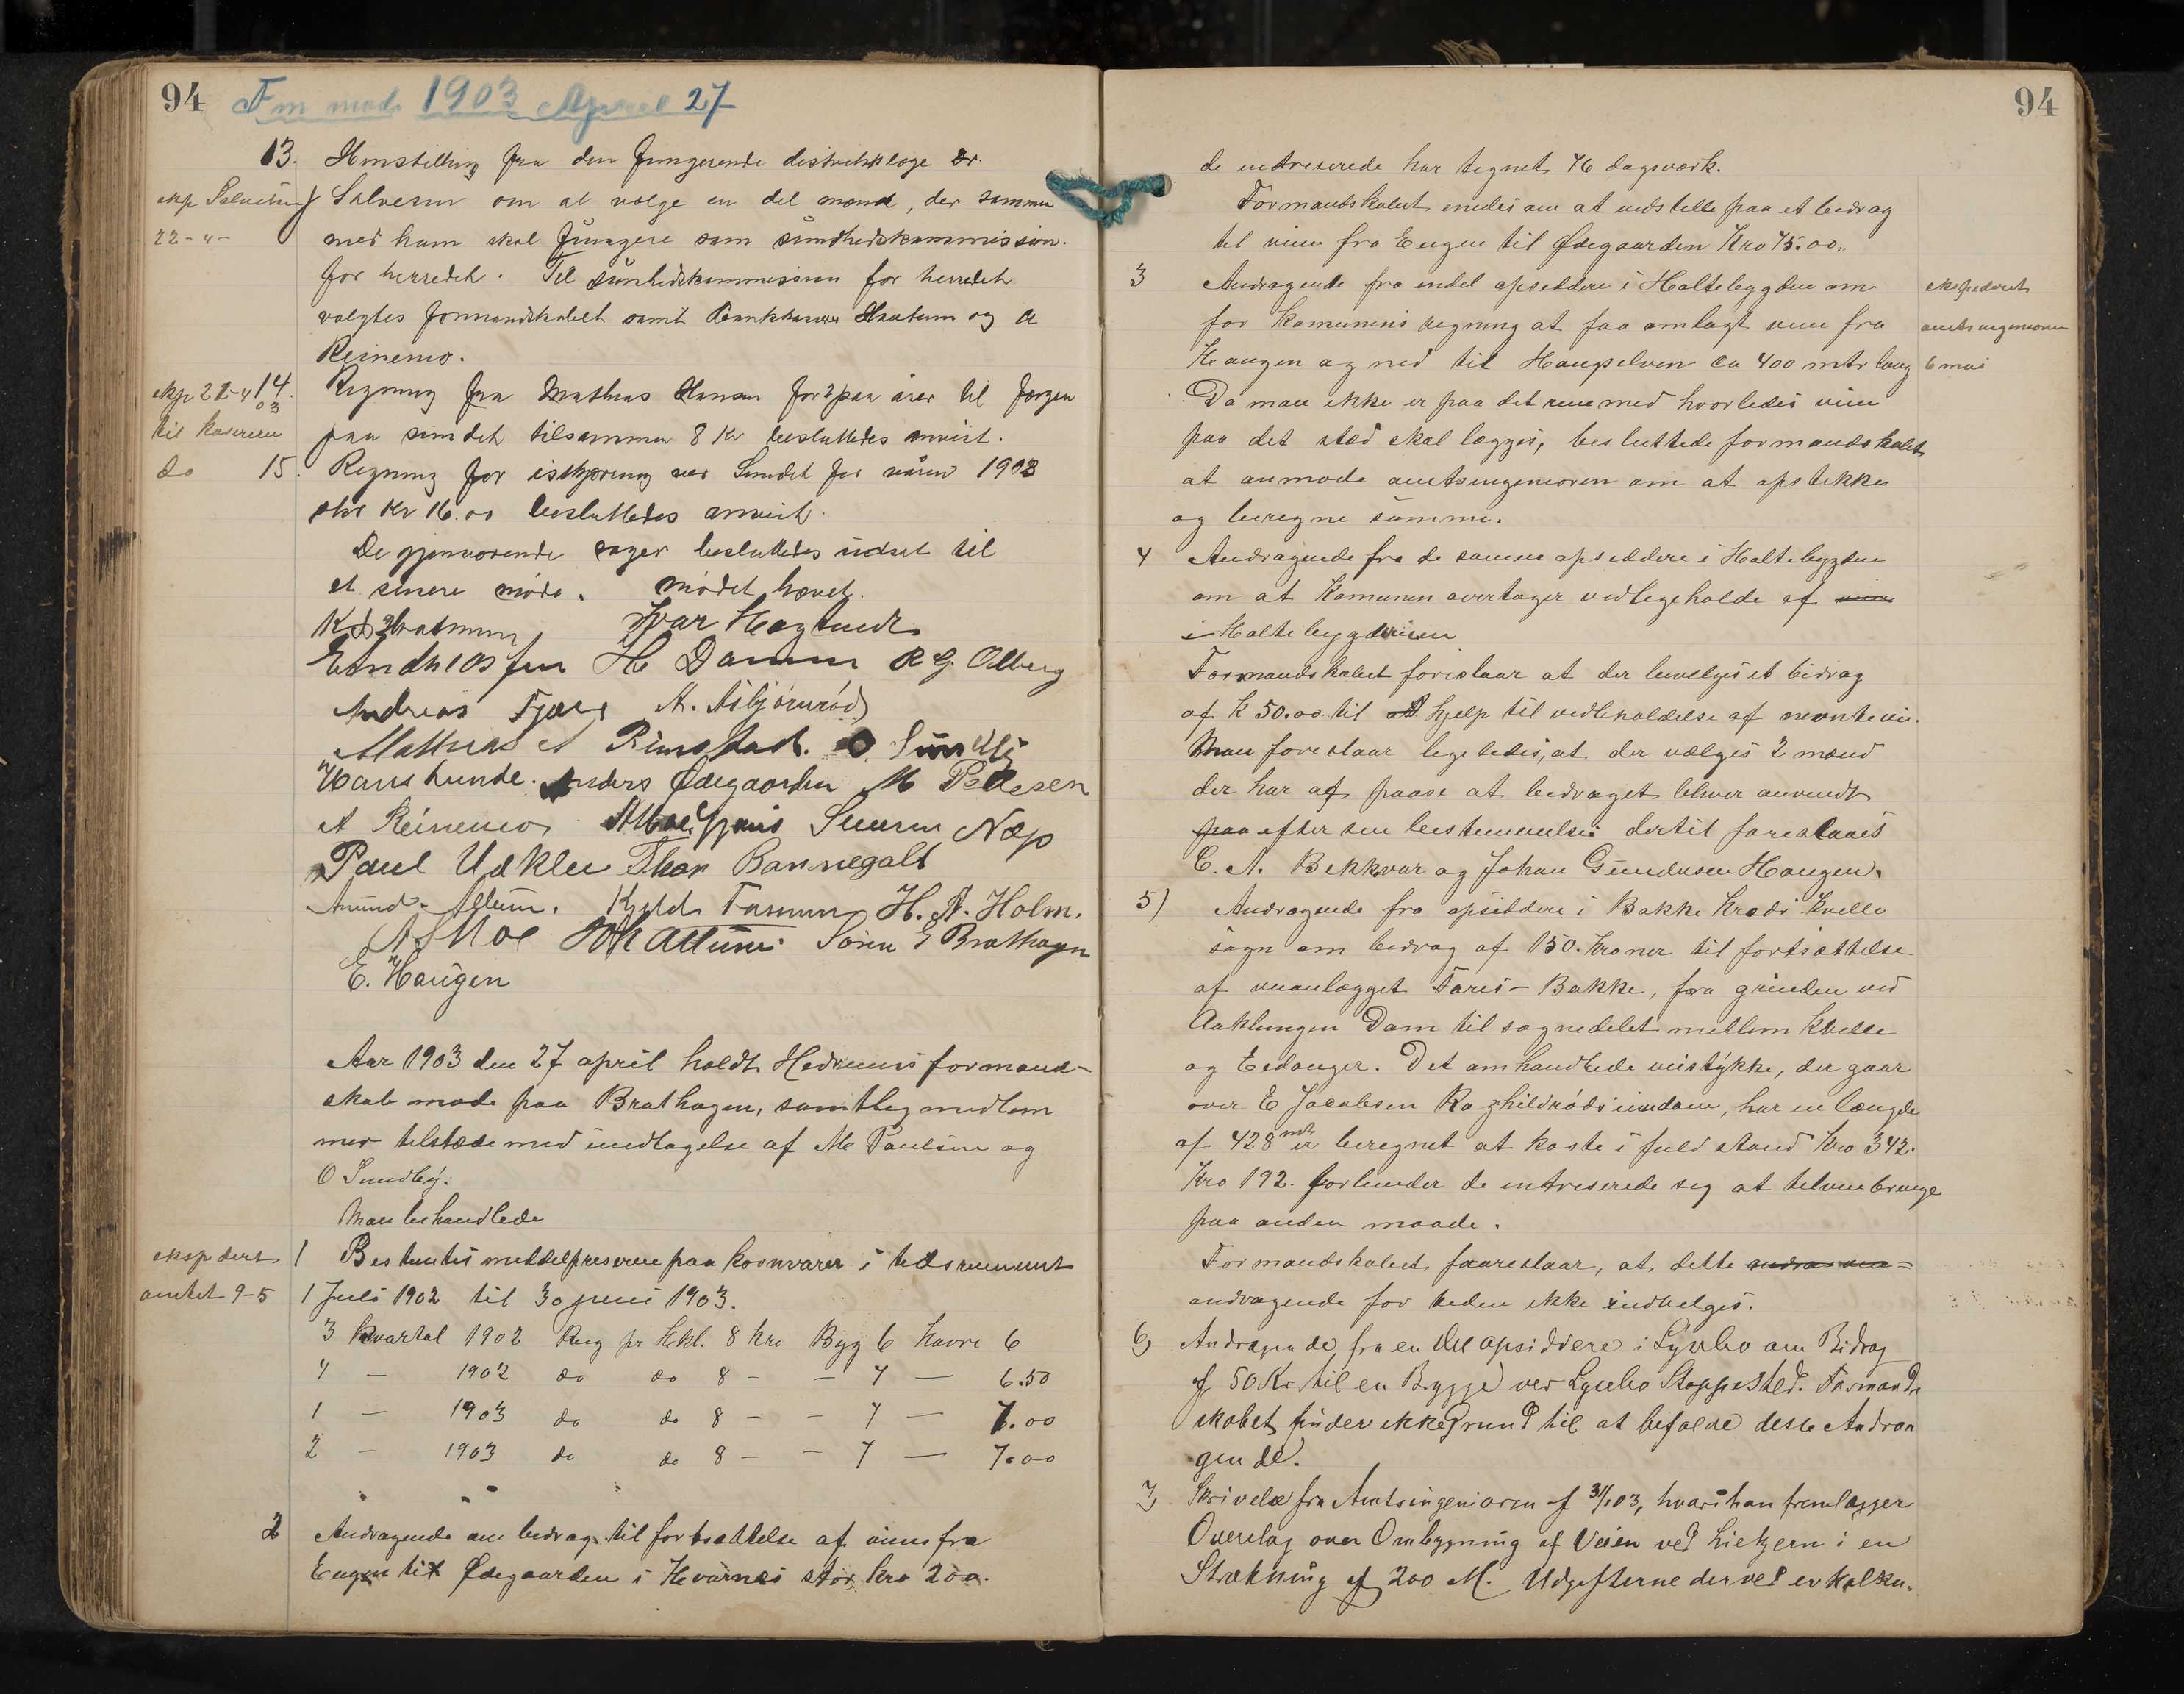 94 Fm møde 1903 April 27
13. Henstilling fra den fungerende distriktslæge dr.
exp Salvesen Salvesen om at vælge en del mænd, der sammen
22-4- med ham skal fungere som sundhedskommission
for herredet. Til sundhedskommission for herredet
valgtes formandskabet samt Haatum og A
Reinemo.
exp 22-4 03 14. Regning fra Mathias Hansen for 2 par årer til færgen
til kasereren paa sundet tilsammen 8 Kr besluttedes anvist.
do 15. Regning for iskjøring ved Sundet for våren 1903
stor Kr 16.00 besluttedes anvist.
De gjenværende sager besluttedes udsat til
et senere møde. mødet hævet.
Ivar Hegtuedt
H Damm R G. Olberg
Andreas Fjære A. Asbjørnrød
Mathias A Rimstad. O. Sundby
Hans Lunde. Anders Ødegaarden M Pettesen
A Reinemo Næp
Paul Uækle Thor Bannegalt
Amund Allum. Kjeld H. A. Holm.
A. Moe Allum Søren E Brathagen
E. Haugen
Aar 1903 den 27 april holdt Hedrums formand-
skab møde paa Brathagen, samtlig medlem
mer tilstæde med undtagelse af M Paulsen og
O Sundby.
Man behandlede
ekspedert 1 Bestemtes middelpriserne paa kornvarer i tidsrummet
amtet 9-5 1 Juli 1902 til 30 juni 1903.
3 kvartal 1902 Rug pr Hekl. 8 kro Byg 6 havre 6
4 — 1902 do do 8 - — 7 — 6.50
1 — 1903 do do 8 - - 7 — 7.00
2 — 1903 do do 8 - - 7 — 7.00
2 Andragende om bedrag til fortsættelse af veien fra
Eugen til Ødegaarden i Hvarnes stor kro 200.
94
de intreserede har tegnet 76 dagsværk.
Formandskabet enedes om at indstille paa et bedrag
til veien fra Eugen til Ødegaarden Kro 75.00.
3 Andragende fra endel opsiddere i Holtebygden om ekspederet
for Komunens regning at faa omlagt veien fra amtsingeniøren
Haugen og ned til Haugselven ca 400 mtr lang 6 mai
Da man ikke er paa det rene med hvorledes veien
paa det sted skal lægges, besluttede formandskabet
at anmode amtsingeniøren om at opstikke
og beregne samme.
4 Andragende fra de samme opsiddere i Holtebygden
om at Komunen overtager vedligeholde af veien
i Holtebygdveien
Formandskabet foreslaar at der bevelges et bidrag
af K 50.00 til hjelp til vedleholdelse af nevnte vei.
Man foreslaar ligeledes, at der vælges 2 mænd
der har at paase at bedraget bliver anvendt
paa efter sin bestemmelse dertil foreslaaes
C. A. Bekkvar og Johan Gundersen Haugen.
5) Andragende fra opsiddere i Bakke Kreds Kvelle
sogn om bedrag af 150. kroner til fortsættelse
af veianlægget Faris - Bakke, fra grinden ved
Aaklungen Dam til sognedelet mellem Kvelle
og Eidanger. Det omhandlede veistykke, der gaar
over E Jacobsen Raghildrøds eiendom, har en længde
af 428 mtr er beregnet at koste i fuld stand Kro 342.
Kro 192. forbinder de intreserede seg at telveiebringe
paa anden maade.
Formandskabet fooreslaar, at dette
andragende for tiden ikke indvelges.
6) Andragende fra en Del opsiddere i Lysebo om Bidrag
af 50 Kr til en Brygge ved Lysebo Stoppested. Formands
skabet finder ikke Grund til at befalde dette Andra
gende.
7) Skrivelse fra Amtsingeniøren af 31/1 03, hvori han fremlægger
Overslag over Ombygning af Veien ved Lietjern i en
Strækning af 200 M. Udgifterne derved er kalku-